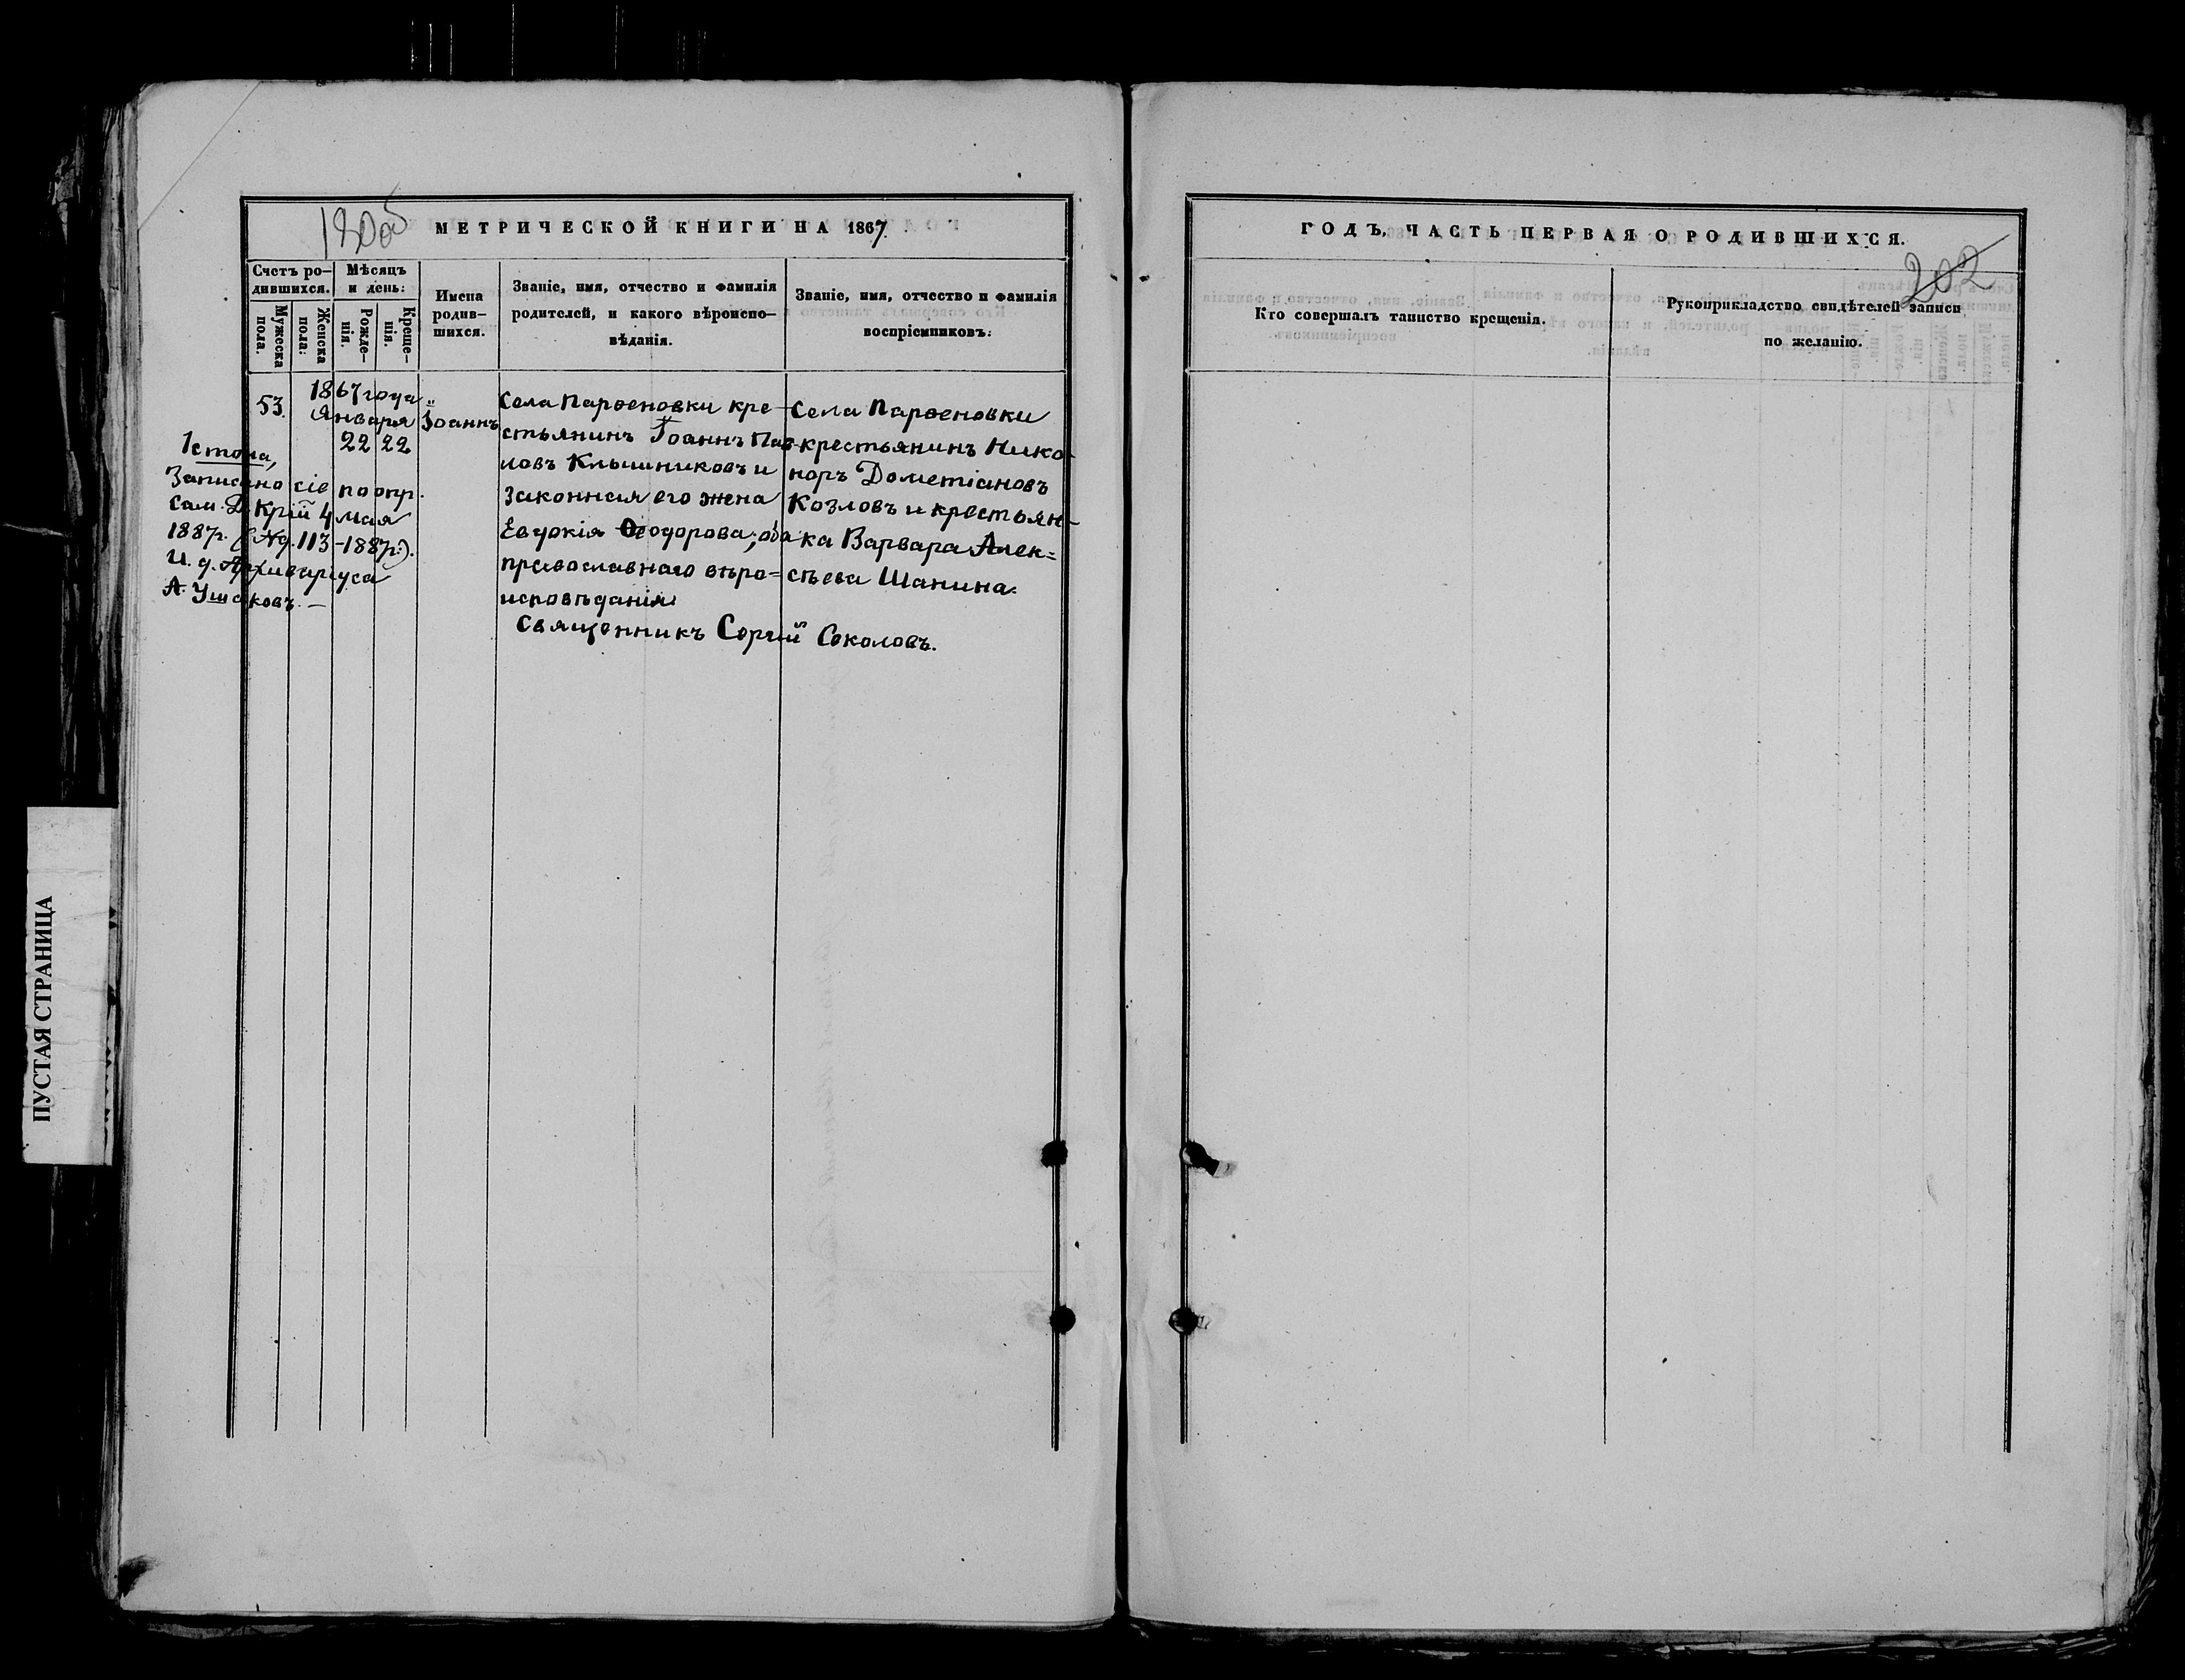 МЕТРИЧЕСКОЙ КНИГИ НА 1867.
Счетъ ро-
дившихся.
Мужеска
пола.
Женска
пола:
Мѣсяцъ
и день:
Рожде-
нія.
Креще-
нія.
Имена
родив-
шихся.
Званіе, имя, отчество и фамилія
родителей, и какого вѣроиспо-
вѣданія.
Званіе, имя, отчество и фамилія
воспріемниковъ:
53.
1867 года
Января
22 22
Іоаннъ
Села Парѳеновки кре-
стьянинъ Іоаннъ Пав-
ловъ Клышниковъ и
законная его жена
Евдокія Ѳеодорова; оба
православнаго вѣро=
исповѣданія.
Села Парѳеновки
крестьянинъ Нико-
норъ Дометіановъ
Козловъ и крестьян-
ка Варвара Алек=
сѣева Шанина.
Священникъ Сергій Соколовъ.
1 стола,
Записано сіе по опр.
Сам. Д. Кріи 4 мая
1887г. (№д. 113-1887г.).
И. д. Архиваріуса
А. Ушаковъ. —
ГОДЪ, ЧАСТЬ ПЕРВАЯ О РОДИВШИХСЯ.
202
Кто совершалъ таинство крещенія.
Рукоприкладство свидѣтелей записи
по желанію.
ПУСТАЯ СТРАНИЦА